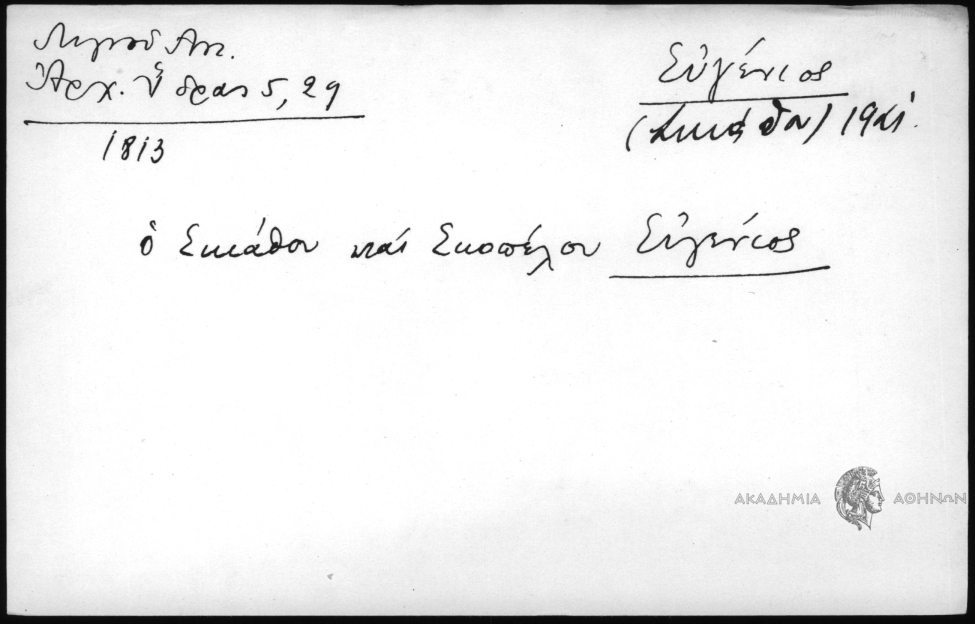 Λιγνού Αντ.
Ἀρχ. Ὕδρας 5, 29
1813
Εὐγένιος
(Σκιάθου) 1921.
ὁ Σκιάθου καί Σκοπέλου Εὐγένιος
ΑΚΑΔΗΜΙΑ ΑΘΗΝΩΝ